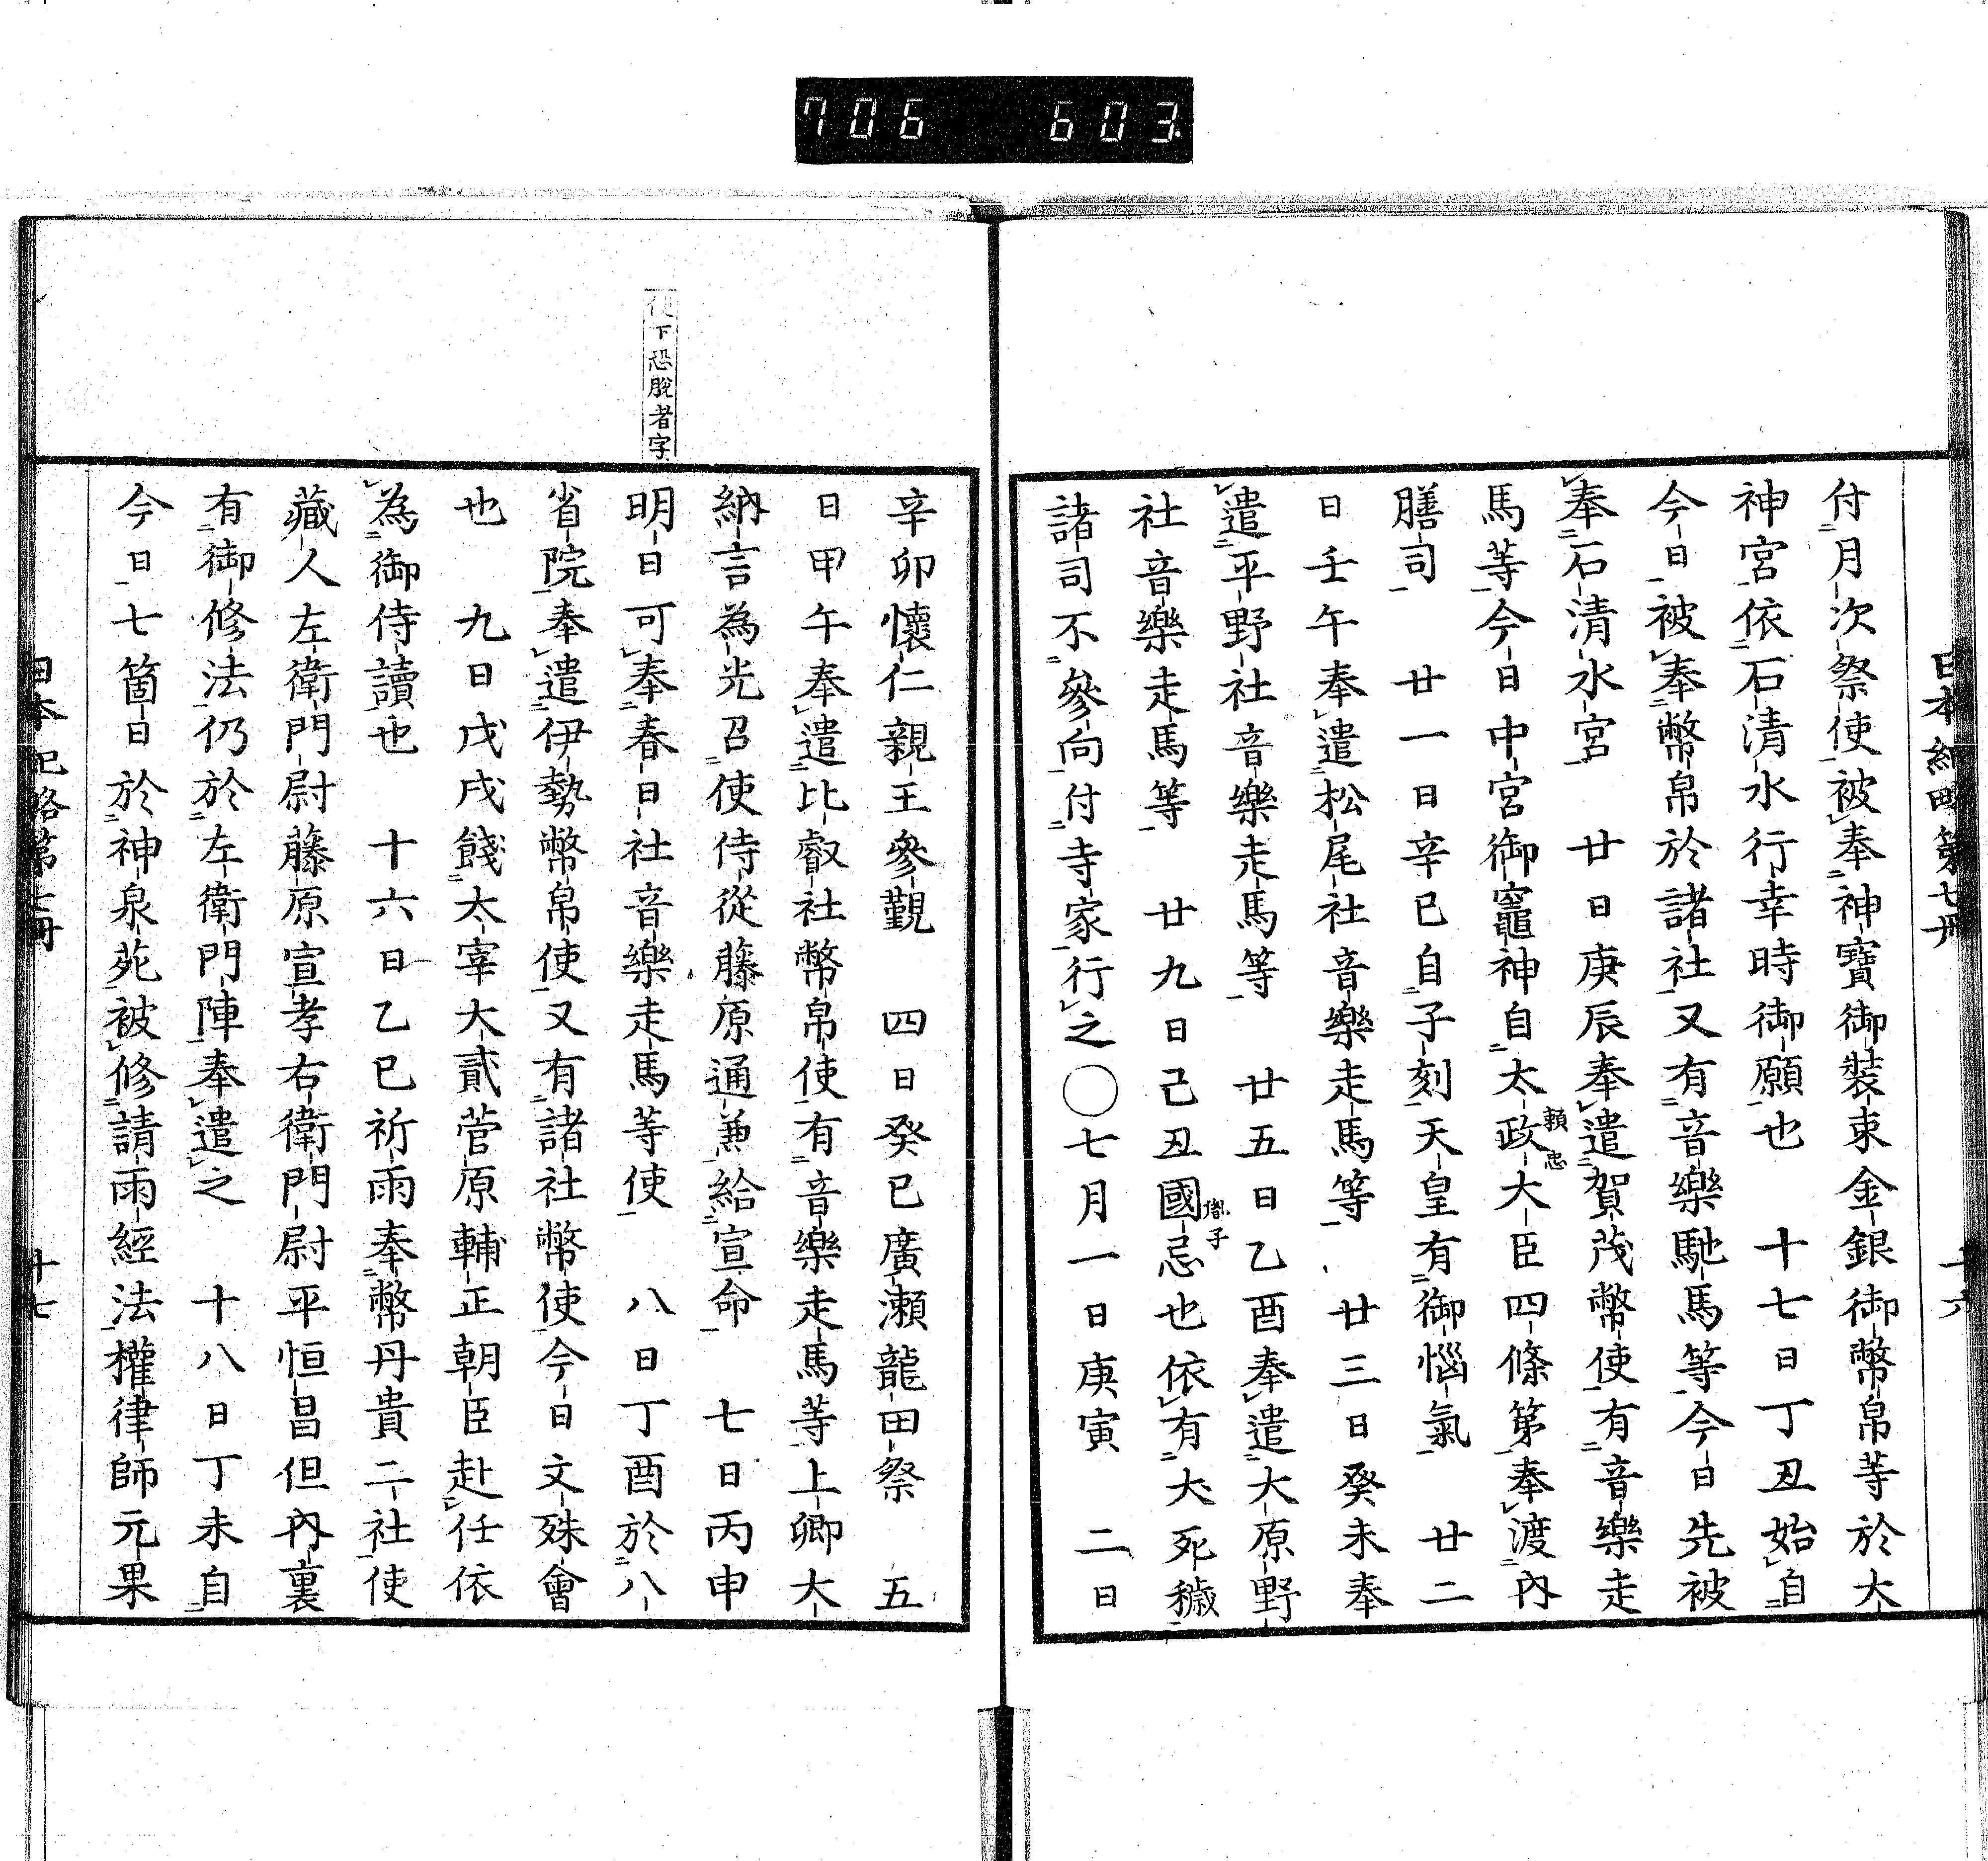 706 603
日本紀略第七冊 十六
付月次祭使被奉神寶御裝束金銀御幣帛等於大
神宮依石清水行幸時御願也 十七日丁丑始自
今日被奉幣帛於諸社又有音樂馳馬等今日先被
奉石清水宮 廿日庚辰奉遣賀茂幣使有音樂走
馬等今日中宮御竈神自太政大臣四條第奉渡內
賴忠
膳司 廿一日辛巳自子刻天皇有御惱氣 廿二
日壬午奉遣松尾社音樂走馬等 廿三日癸未奉
遣平野社音樂走馬等 廿五日乙酉奉遣大原野
社音樂走馬等 廿九日己丑國忌也依有犬死穢
胤子
諸司不參向付寺家行之○七月一日庚寅 二日
辛卯懷仁親王參覲 四日癸巳廣瀨龍田祭 五
日甲午奉遣比叡社幣帛使有音樂走馬等上卿大
納言為光召使侍從藤原通兼給宣命 七日丙申
明日可奉春日社音樂走馬等使 八日丁酉於八
使下恐脫者字
省院奉遣伊勢幣帛使又有諸社幣使今日文殊會
也 九日戊戌餞太宰大貳菅原輔正朝臣赴任依
為御侍讀也 十六日乙巳祈雨奉幣丹貴二社使
藏人左衛門尉藤原宣孝右衛門尉平恒昌但內裏
有御修法仍於左衛門陣奉遣之 十八日丁未自
今日七箇日於神泉苑被修請雨經法權律師元果
日本紀略第七冊 十七